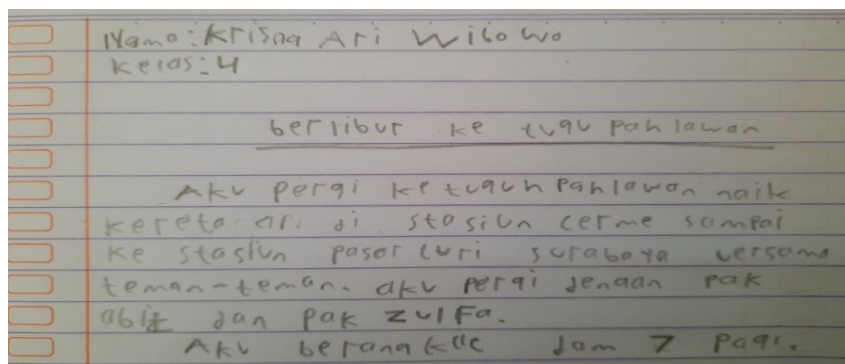 Nama: Krisna Ari Wibowo
Kelas: 4
berlibur ke tugu pahlawan
Aku pergi ke tuguh Pahlawan naik
kereta api di stasiun cerme sampai
ke stasiun pasar turi surabaya bersama
teman-teman. aku pergi dengan pak
abit dan pak zulfa.
Aku berangkat jam 7 pagi.